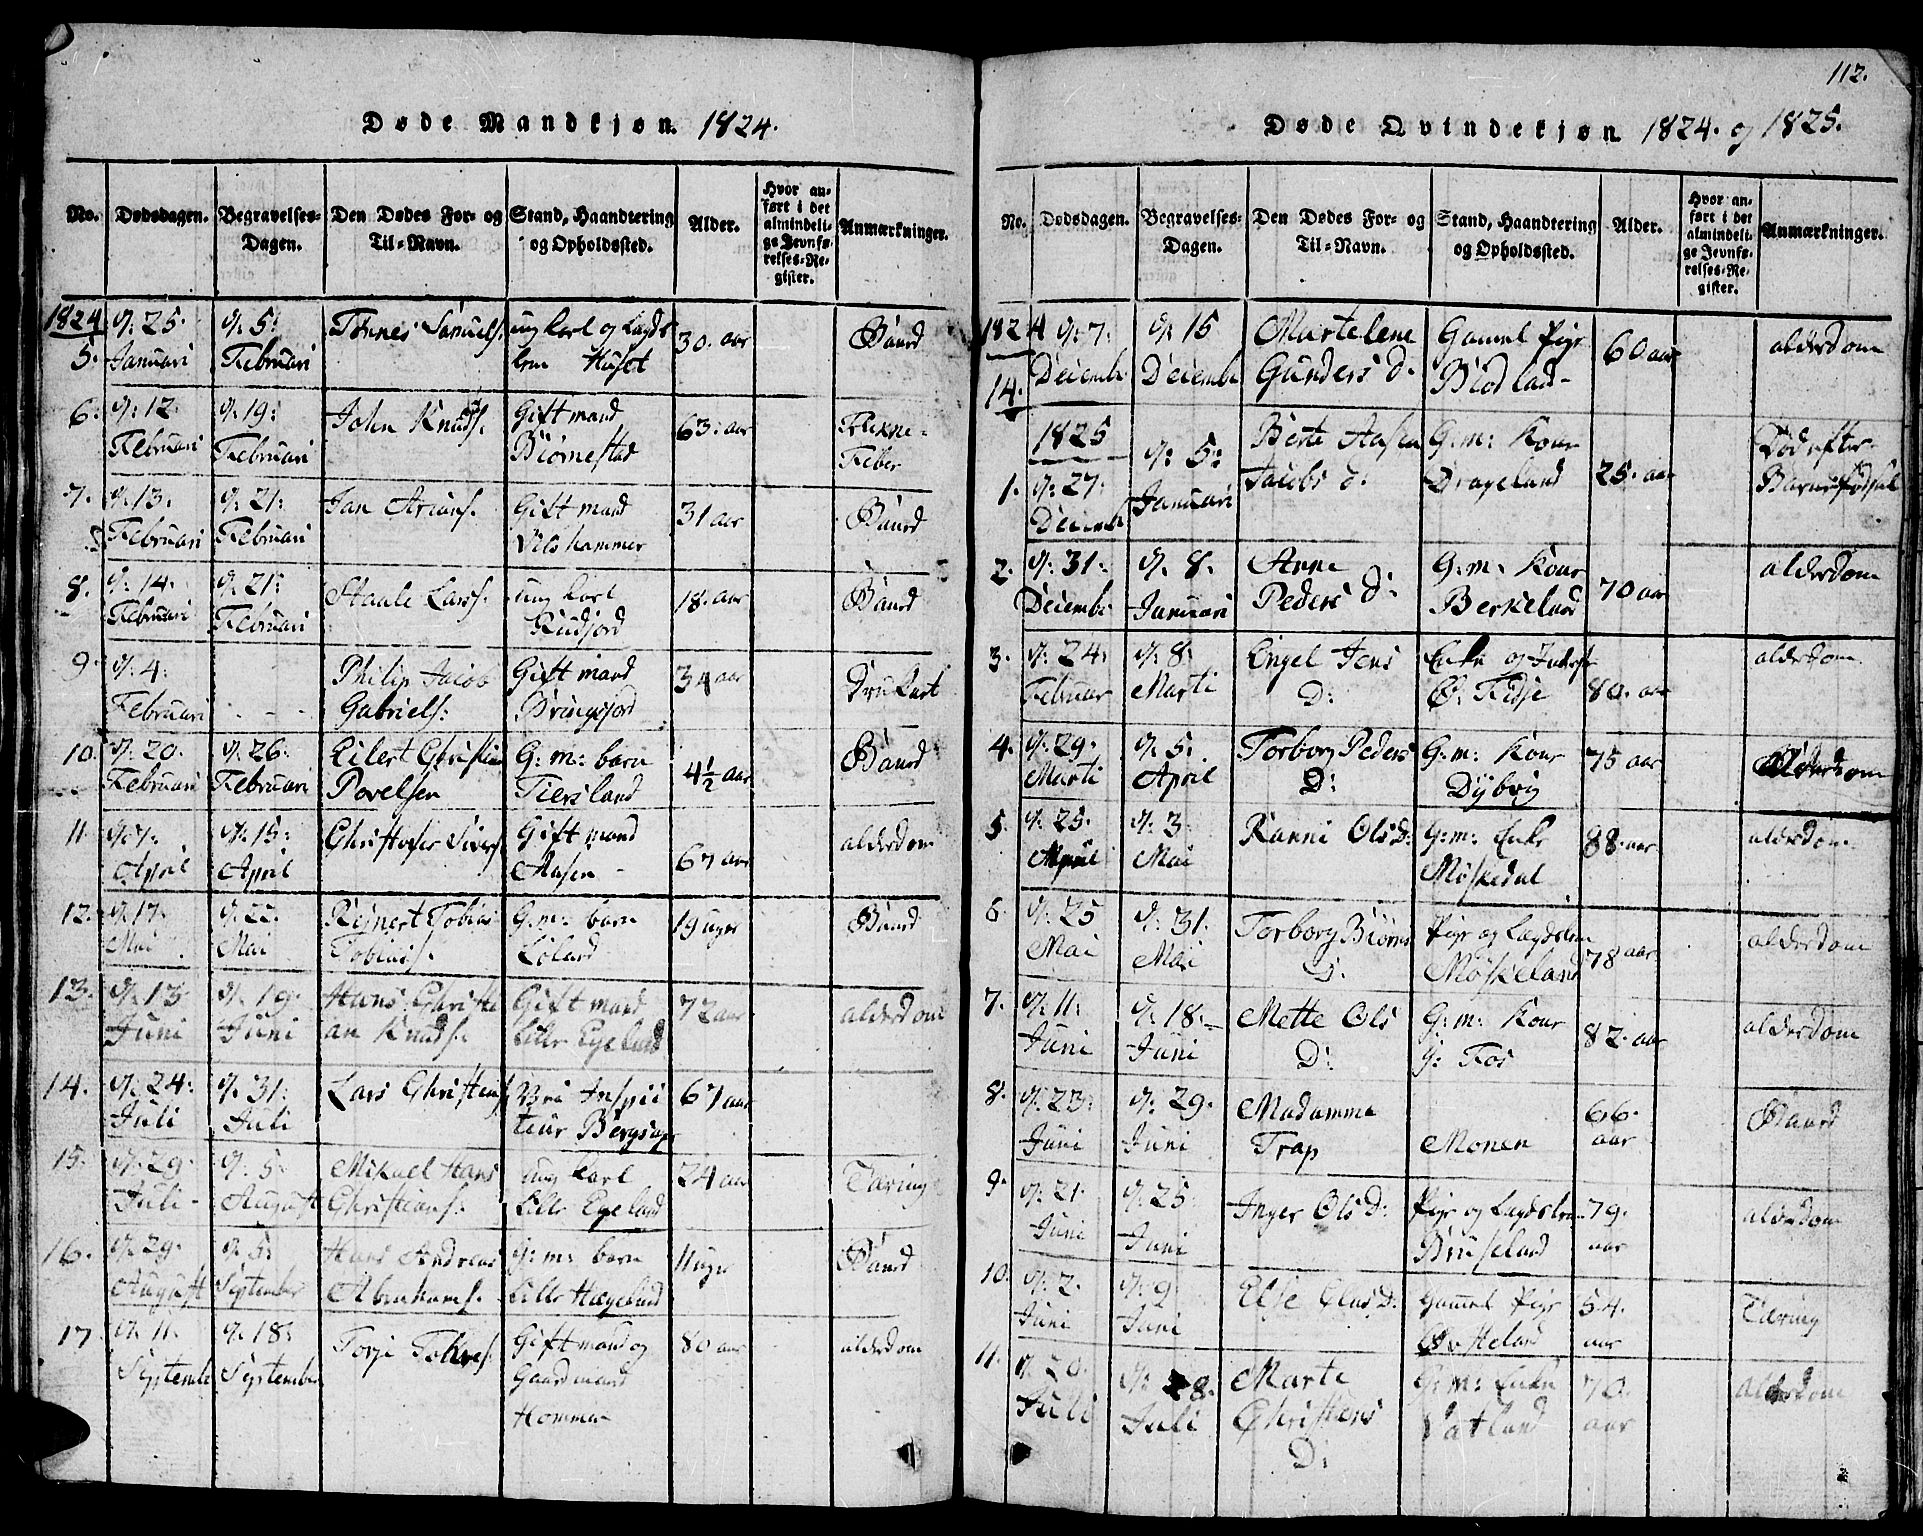 Døde Mandkjøn. 1824.
No. Dødsdagen. Begravelses-Dagen. Den Dødes For- og Til-Navn. Stand, Haandtering og Opholdssted. Alder. Hvor anført i det almindelige Jevnførelses-Register. Anmærkninger.
1824
5. d: 25. d: 5: Tønnes Samuels: ung karl og Lægds 30. aar Baard
Januari Februari lem Huset
6. d: 12. d: 19: John Knuds: Gift mand 63: aar Flekne-
Februari Februari Biørnestad Feber
7. d: 13. d: 21: Jan Arians: Gift mand 31 aar Baard
Februari Februari Vilshammer
8. d: 14. d: 21: Staale Lars: ung karl 18. aar Baard
Februari Februari Rudjord
9. d: 4: Philip Jacob Gift mand 34 aar Drukart
Februari - - - Gabriels: Bringsjord
10. d: 20. d: 26: Eilert Christian G: m: barn 4½ aar Baard
Februari Februari Povelsen Tiersland
11. d: 7. d: 15: Christofer Sivers: Gift mand 67 aar alderdom
April April Aasen -
12. d: 17. d: 22: Rejnert Tobias G: m: barn 19 uger Baard
Mai Mai Tobias: Løland
13. d: 13 d: 19: Hans Christi Gift mand 72 aar alderdom
Juni Juni an Knuds: Lille Egeland
14. d: 24: d: 31: Lars Christens: 67 aar
Juli Juli teur
15. d: 29. d: 5: Mikael Hans ung karl 24 aar Tæring
Juli - August Christians: Lille Egeland
16. d: 29. d: 5: Hans Andreas G: m: barn 11 uger Baard
August September Abrahams: Lille Hægeland
17. d: 11. d: 18: Torje Gift mand og 80 aar alderdom
Septembe September Gaardmand
Homme
112.
Døde Qvindekjøn 1824. og 1825.
No. Dødsdagen. Begravelses-Dagen. Den Dødes For- og Til-Navn. Stand, Haandtering og Opholdssted. Alder. Hvor anført i det almindelige Jevnførelses-Register. Anmærkninger.
1824 d: 7: d: 15 Martelene Gamel Pige 60 aar alderdom
14. Decembr Decembr Gunders D. Biodland
1825 Berte Aasen G: m: Kone Død efter
1. d: 27: d: 5: Jacobs D: Drageland 25. aar Barnefødsel
Decembr Januari
2. d: 31: d: 8. Anne G: m: Kone 70 aar alderdom
Decembr Januari Peders D: Berkeland
3. d: 24: d: 8. Engel Jens Enke og 80. aar alderdom
Februar Marti D: Ø: Fidje
4. d: 29: d: 5. Torborg Peders G: m: Kone 75 aar alderdom
Marti April D: Dybvig
5. d: 25. d: 3. Ranni Ols D: G: m: Enke 88. aar alderdom
April Mai Møskedal
6. d: 25 d: 31. Torborg Biørns Pige og Lægdslem 78 aar alderdom
Mai Mai D: Møskeland
7. d: 11: d: 18. - Mette Ols G: m: Kone 82. aar alderdom
Juni Juni D: Fos
8. d: 23: d: 29. Madamme 66. Baard
Juni Juni Trap Monen aar
9. d: 21. d: 25 Inger Ols D: Pige og Lægdslem 79. alderdom
Juni Juni Bruseland aar
10. d: 2. d: 9 Else Olas D: Gamel Pige 54. Tæring
Juni Juni aar
11. d: 20. d: 28. Marte G: m: Enke 70. alderdom
Juli Juli Christens Vatland aar
D: